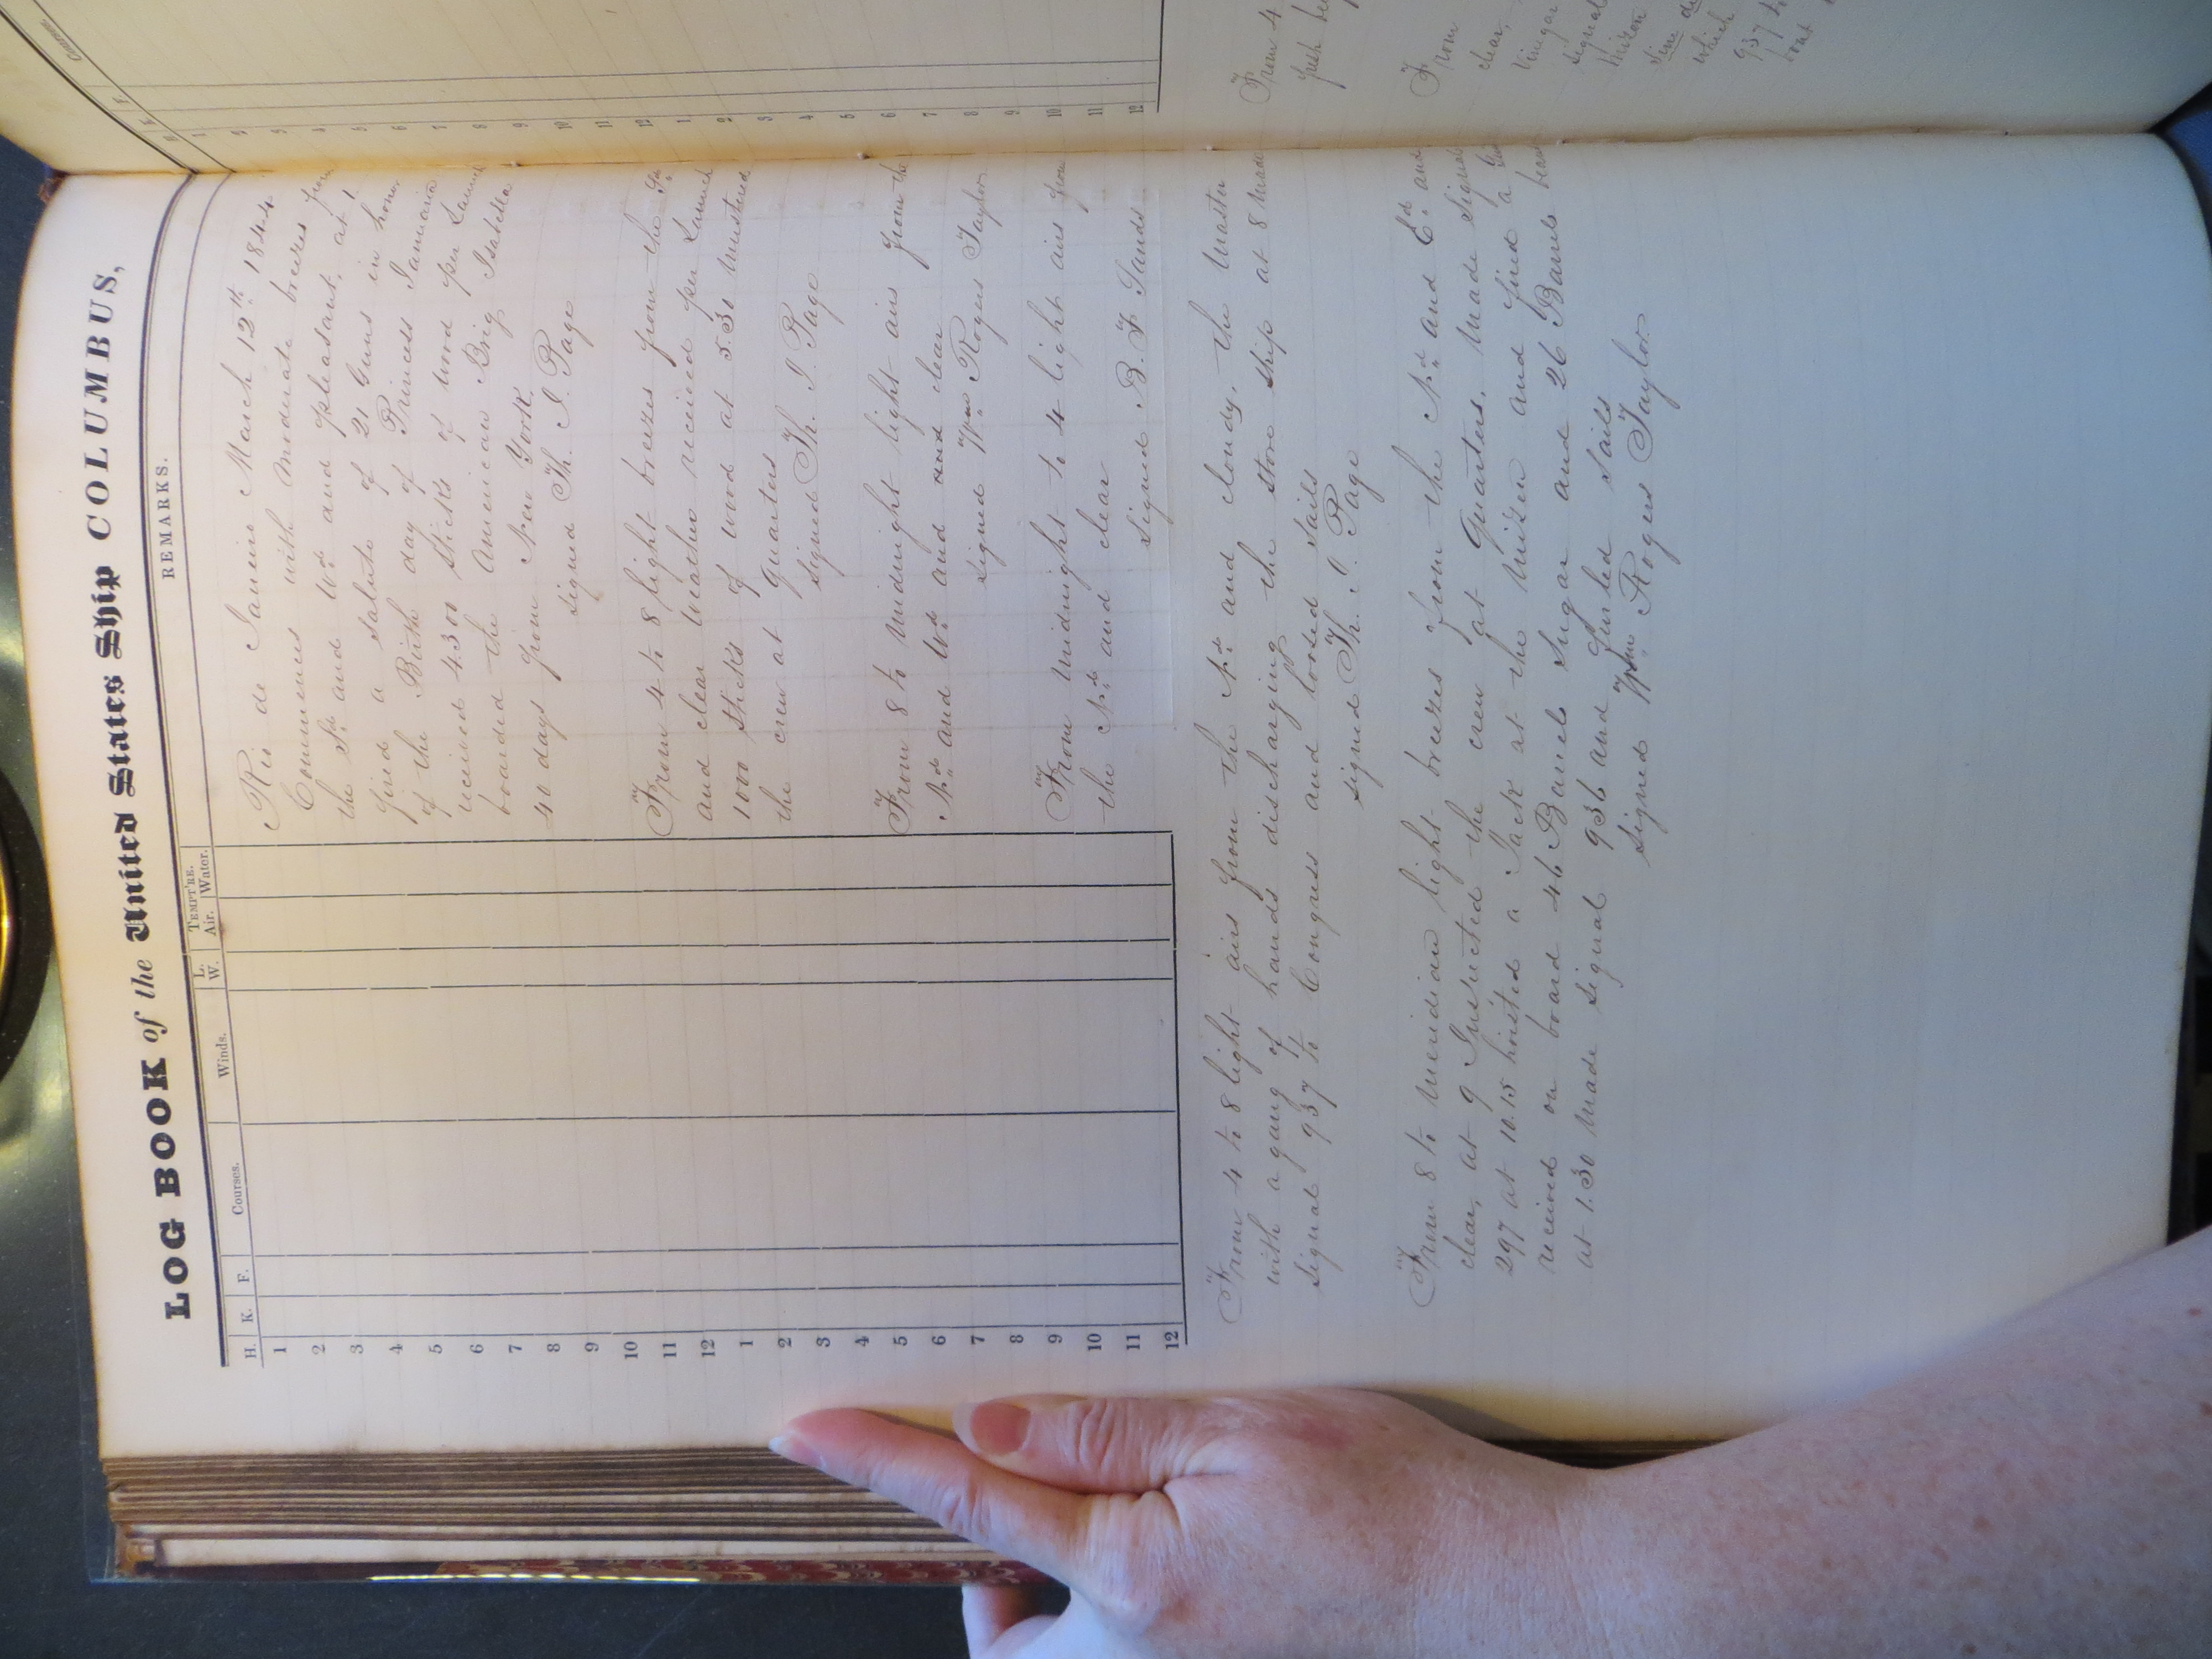 LOG BOOK of the United States Ship COLUMBUS,
H. K. F. Courses. Winds. L. W. TEMPT'RE. Air. Water. REMARKS.
1
2
3
4
5
6
7
8
9
10
11
12
1
2
3
4
5
6
7
8
9
10
11
12
Rio de Janeiro March 12th 1844
Commences with moderate breezes from
the Sd and Wd and pleasant, at 1
fired a salute of 21 Guns in honor
of the Birth day of Princess Januaria
received 4300 sticks of wood per Launch
boarded the American Brig Isabella
40 days from New York
signed Th. J. Page
From 4 to 8 light breezes from the Sd
and clear weather received per Launch
1000 sticks of wood at 5.30 mustered
the crew at quarters
signed Th. J. Page
From 8 to midnight light airs from the
Nd and Wd and and clear
signed Wm Rogers Taylor
From midnight to 4 light airs from
the Nd and clear
signed B. F. Sands
From 4 to 8 light airs from the Nd and cloudy. the Master
with a gang of hands discharging the store ship at 8 made
signal 937 to Congress and loosed sails
signed Th. J. Page
From 8 to meridian light breezes from the Nd and Ed and
clear, at 9 Inspected the crew at Quarters. made signal
297 at 10.15 hoisted a Jack at the Mizen and fired a Gun
received on board 46 Barrels Sugar and 26 Barrels beans
at 1.30 made signal 936 and furled sails
signed Wm Rogers Taylor
H. K. F. Courses
1
2
3
4
5
6
7
8
9
10
11
12
1
2
3
4
5
6
7
8
9
10
11
12
From 4
fresh
From
clear,
Vinegar
signal
Mizen
which
937 to